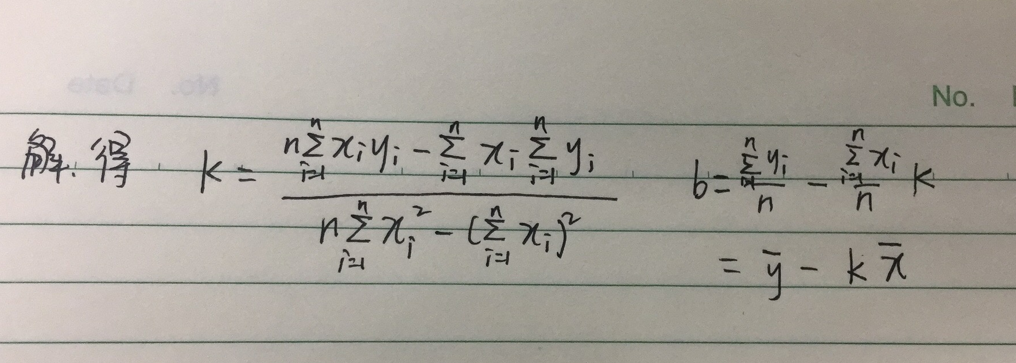 No.
解.得 k = \frac{n\sum_{i=1}^{n} x_i y_i - \sum_{i=1}^{n} x_i \sum_{i=1}^{n} y_i}{n\sum_{i=1}^{n} x_i^2 - (\sum_{i=1}^{n} x_i)^2} b = \frac{\sum_{i=1}^{n} y_i}{n} - \frac{\sum_{i=1}^{n} x_i}{n} k
= \bar{y} - k\bar{x}